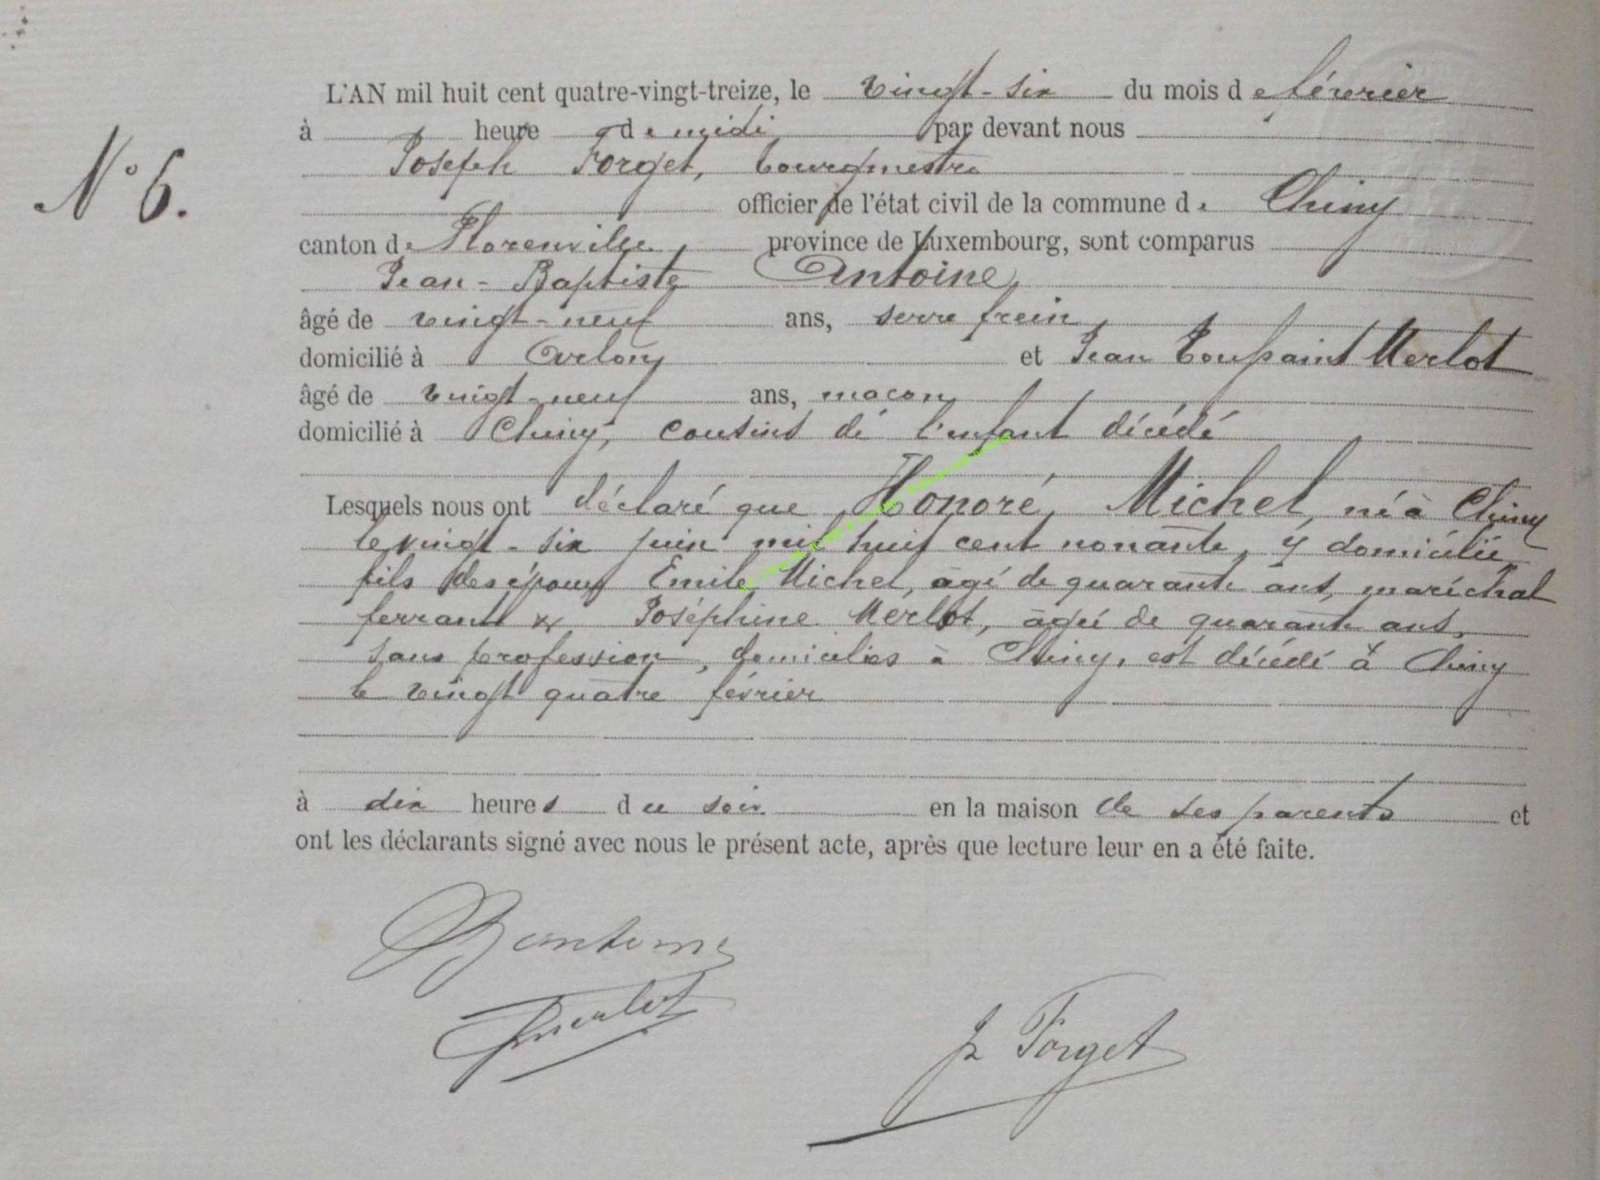 N° 6.
L'AN mil huit cent quatre-vingt-treize, le vingt-six du mois de février
à heure de midi par devant nous
Joseph Forget, bourgmestre
officier de l'état civil de la commune de Chiny
canton de Florenville, province de Luxembourg, sont comparus
Jean-Baptiste Antoine,
âgé de vingt-neuf ans, serre frein,
domicilié à Arlon, et Jean Toussaint Merlot
âgé de vingt-neuf ans, maçon,
domicilié à Chiny, cousins de l'enfant décédé
Lesquels nous ont déclaré que Honoré, Michel, né à Chiny
le vingt-six juin mil huit cent nonante, y domicilié,
fils des époux Emile Michel, âgé de quarante ans, maréchal
ferrant & Joséphine Merlot, âgée de quarante ans,
sans profession, domiciliés à Chiny, est décédé à Chiny
le vingt quatre février
à dix heures du soir en la maison de ses parents et
ont les déclarants signé avec nous le présent acte, après que lecture leur en a été faite.
Merlot
J Forget